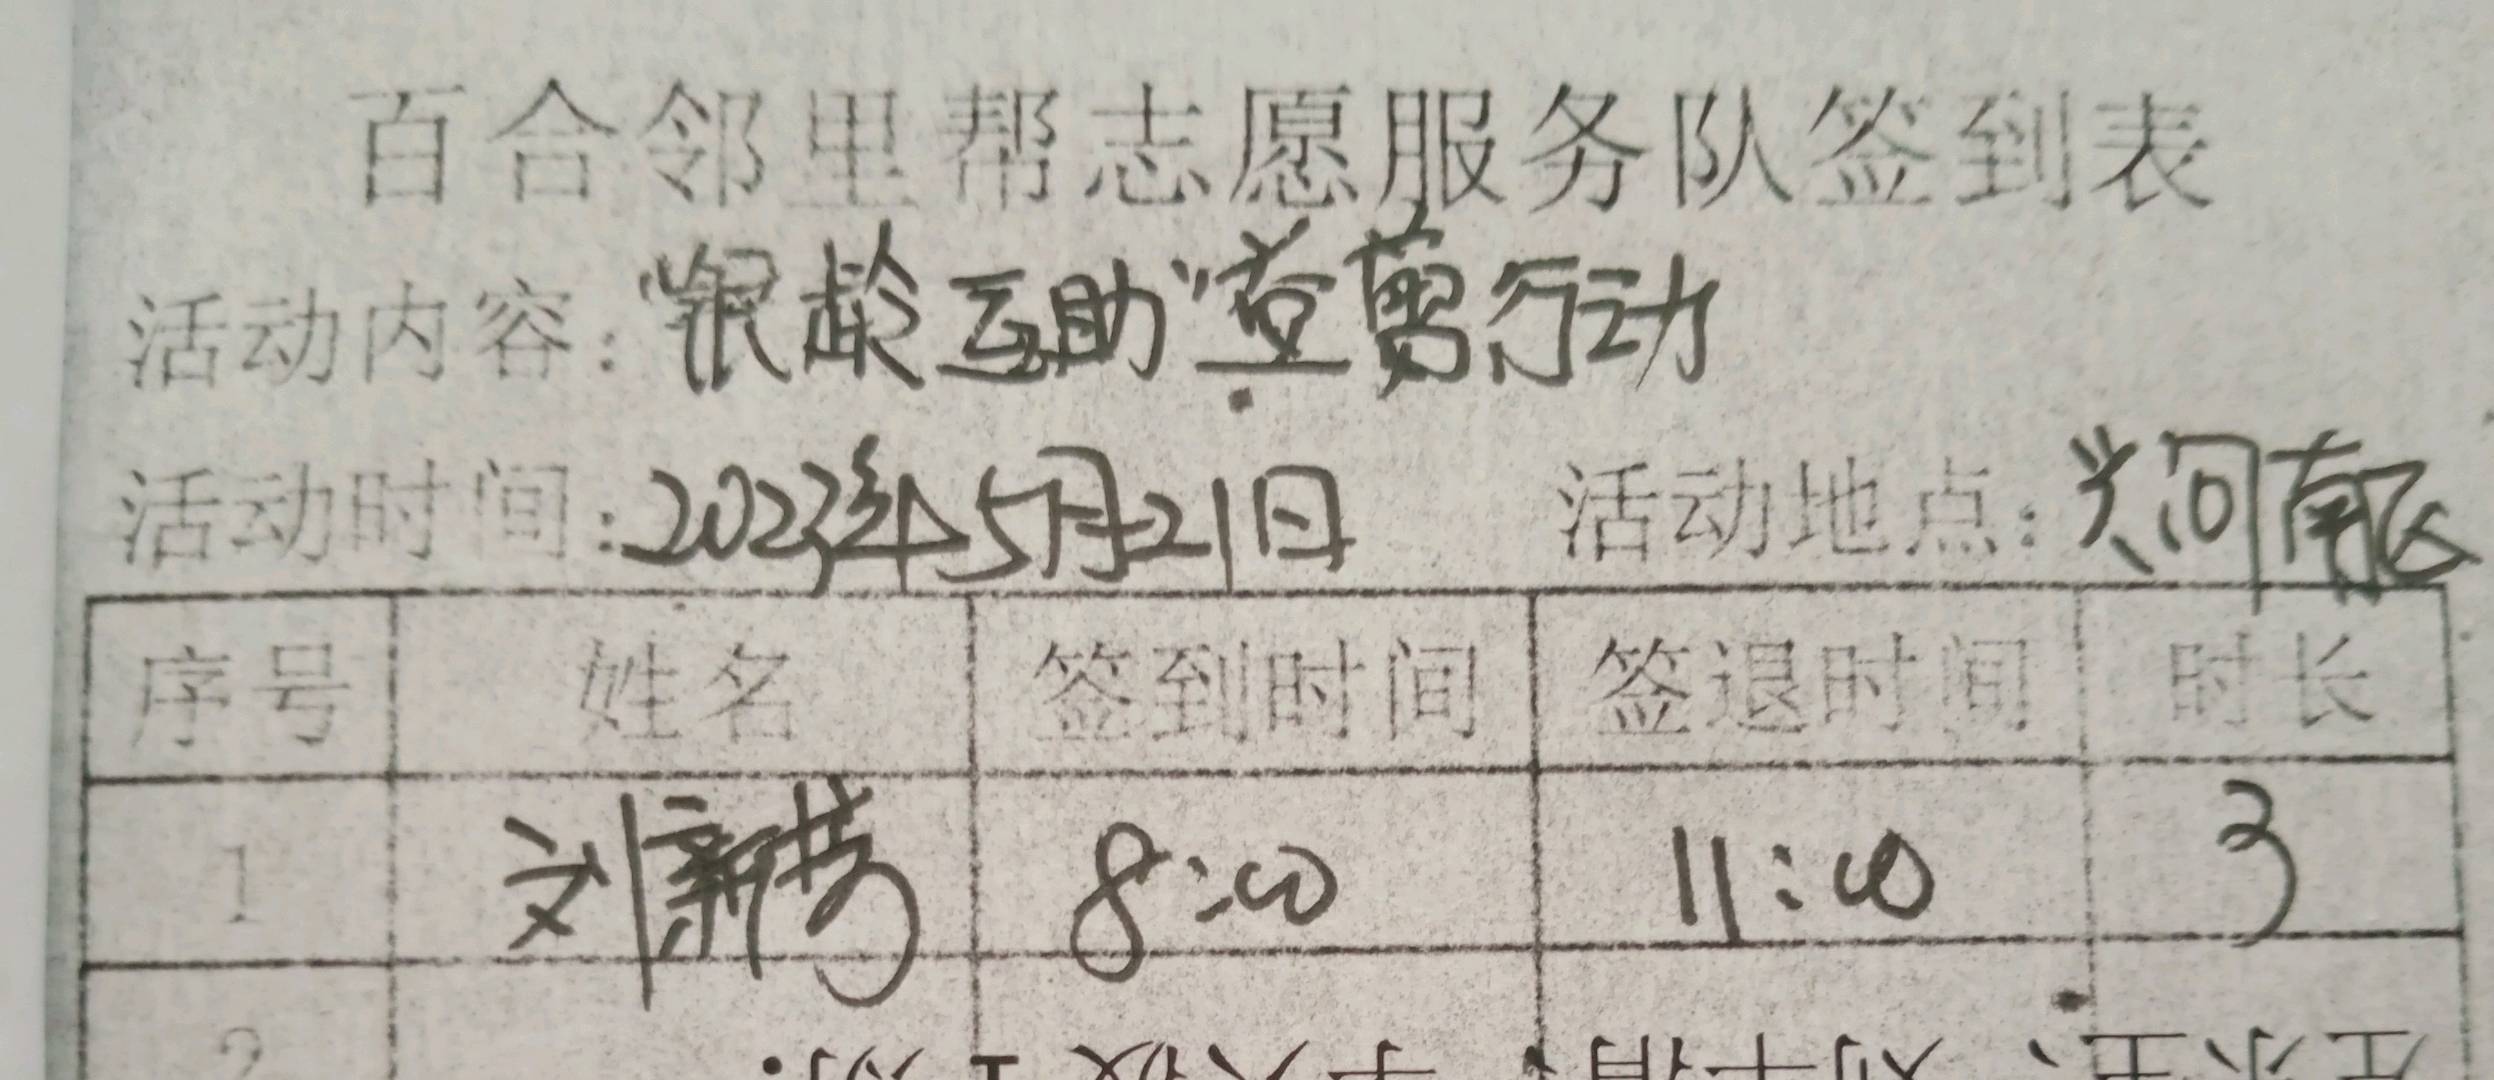 百合邻里帮志愿服务队签到表
活动内容：“银龄互助”益剪行动
活动时间：2023年5月21日 活动地点：兴河南区
序号 姓名 签到时间 签退时间 时长
1 刘新芳 8:00 11:00 3
2